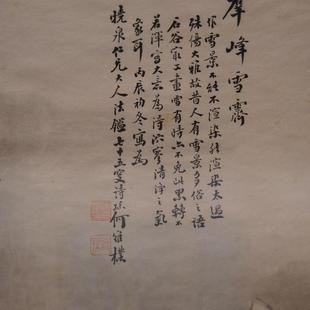 羣峰雪霽
作雪景不能不渲染然渲染太過
殊傷大雅故昔人有雪景多俗之語
石谷最工畫雪有時亦不免此累轉不
若渾寫大意為得泬寥清淨之氣
象耳 丙辰初冬寫為
曉泉仁兄大人法鑑七十五叟詩孫何維樸